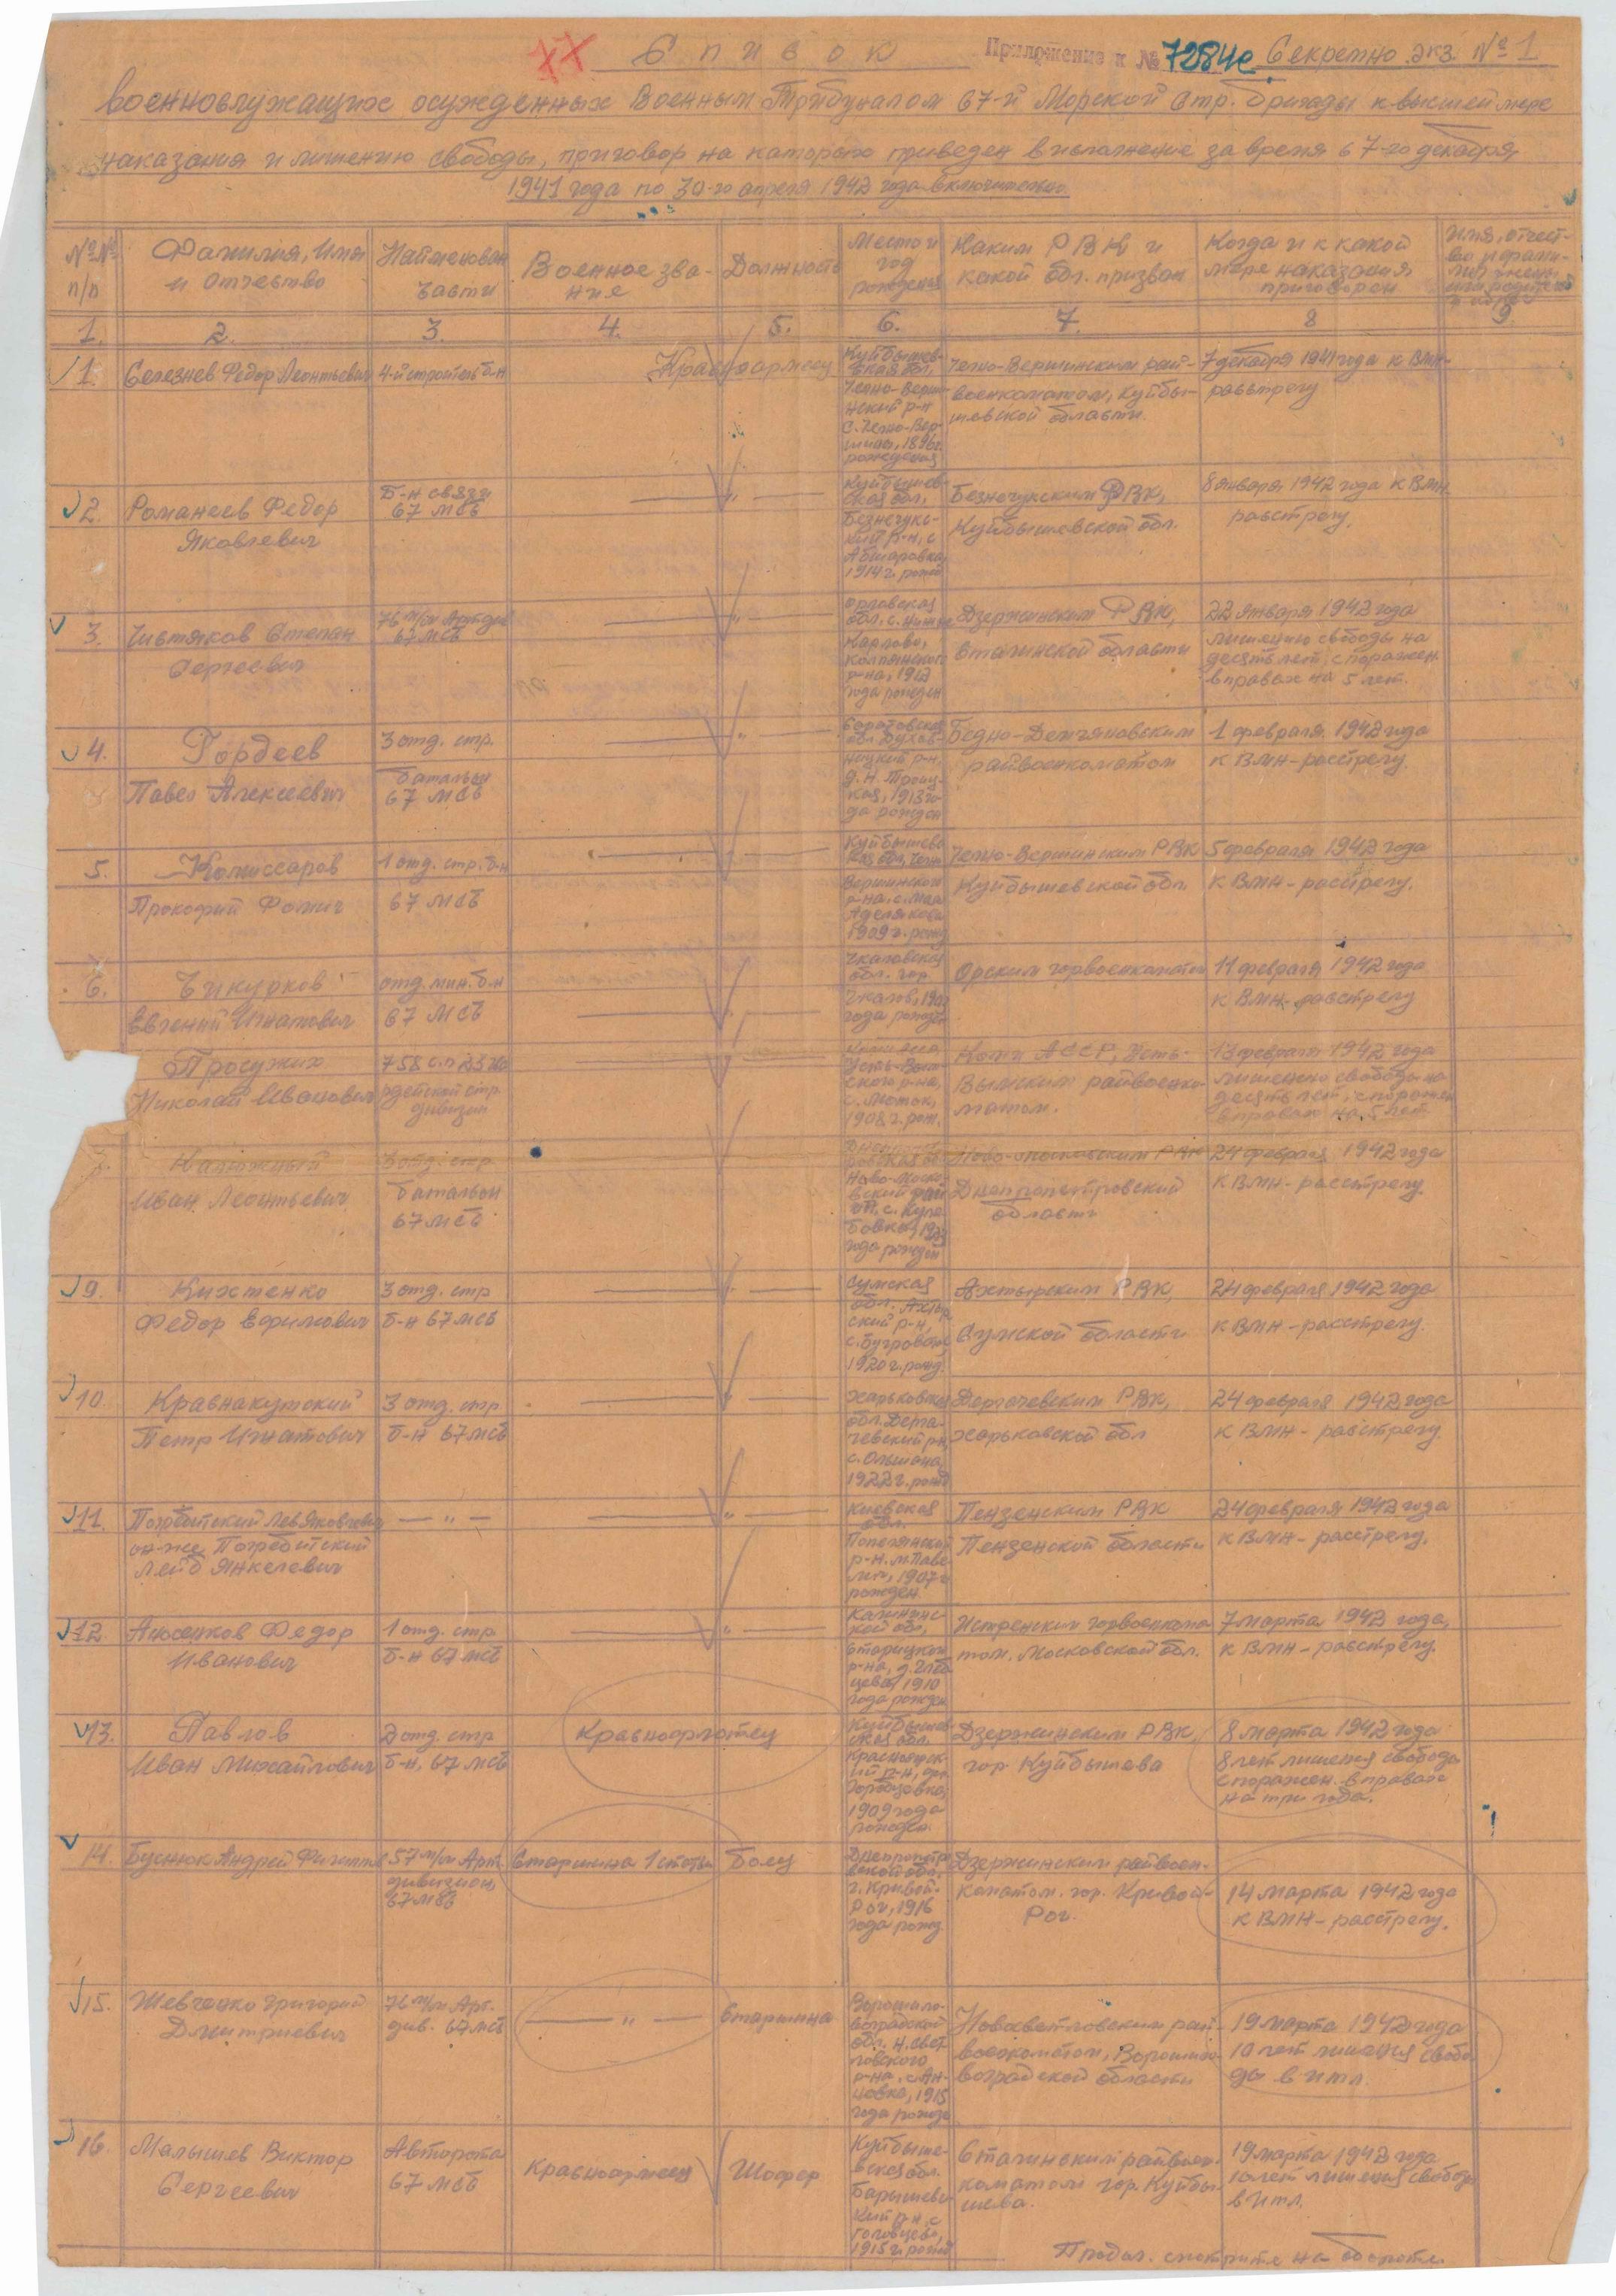 Список
Приложение к № 7284с Секретно экз. № 1
военнослужащих осужденных Военным Трибуналом 67-й Морской Стр. бригады к высшей мере
наказания и лишению свободы, приговор на которого приведен в исполнение за время с 7-го декабря
1941 года по 30-го апреля 1942 года включительно
№№ п/п
Фамилия, Имя и Отчество
Наименован части
Военное зва-
ние
Должность
Место и
год
рождения
Каким РВК и
какой обл. призван
Когда и к какой
мере наказания
приговорен
Имя, отчест-
во и фами-
лия жены
или родителей
1. 2. 3. 4. 5. 6. 7. 8 9
1. Селезнев Федор Леонтьевич
4-й строител б-н
Красноармеец
Куйбышев-
ская обл,
Челно-Верши-
нский р-н
с. Челно-Вер-
шины, 1896г.
рождения
Челно-Вершинским рай-
военкоматом, Куйбы-
шевской области.
7 декабря 1941 года к ВМН-
расстрелу
2. Романеев Федор
Яковлевич
Б-н связи
67 МСБ
— " —
Куйбышев-
ская обл,
Безенчукс-
кий р-н, с
1914 г. рожд
Безенчукским РВК,
Куйбышевской обл.
8 января 1942 года к ВМН
расстрелу.
3. Чистяков Степан
Сергеевич
76 м/м Артдив
67 МСБ
— " —
Орловская
обл. с. Нижне
Карлово,
колпнянского
р-на, 1912
года рожден
Дзержинским РВК,
Сталинской области
22 января 1942 года
лишению свободы на
десять лет, с поражен.
в правах на 5 лет.
4. Гордеев
Павел Алексеевич
3 отд. стр.
батальон
67 МСБ
— " —
Саратовская
обл. Духов-
ницкий р-н,
д. Н. Троиц-
кая, 1913 го-
да рожден
Бедно-Демьяновским
райвоенкоматом
1 февраля 1942 года
к ВМН-расстрелу.
5. Комиссаров
Прокофий Фомич
1 отд. стр. б-н
67 МСБ
— " —
Куйбышевс
кая обл, Челно
Вершинского
р-на, с. Мал
Аделяково
1909 г. рожд
Челно-Вершинским РВК
Куйбышевской обл.
5 февраля 1942 года
к ВМН-расстрелу.
6. Чикурков
Евгений Игнатович
отд. мин. б-н
67 МСБ
— " —
Чкаловская
обл. гор.
года рожден
Орским горвоенкоматом
11 февраля 1942 года
к ВМН-расстрелу
Просужих
Николай Иванович
758 с.п
рдейской стр
дивизии
Усть-Вым-
ского р-на,
1908 г. рож.
Коми АССР, Усть-
Вымским райвоенко-
матом.
13 февраля 1942 года
лишению свободы на
десять лет, с поражен
в правах на 5 лет
8. Калюжный
Иван Леонтьевич
3 отд. стр
батальон
67 МСБ
Ново-Моско-
вский рай
он, с. Куле-
бовка,
года рожден
Ново-Московским РВК
Днепропетровский
область
24 февраля 1942 года
к ВМН-расстрелу.
9. Кихтенко
Федор Ефимович
3 отд. стр
б-н 67 МСБ
— " —
Сумская
обл. Ахтыр
ский р-н,
1920 г. рожд.
Ахтырским РВК,
Сумской области
24 февраля 1942 года
к ВМН-расстрелу.
10. Краснокутский
Петр Игнатович
3 отд. стр
б-н 67 МСБ
— " —
Харьковская
обл. Дерга-
чевский р-н
с. Ольшана,
1922 г. рожд
Дергачевским РВК,
Харьковской обл
24 февраля 1942 года
к ВМН - расстрелу.
11. Погребитский Лев Яковлевич
он-же Погребитский
Лейб Янкелевич
— " —
— " —
Киевская
обл.
Попелянский
р-н. м. Паво
лич, 1907 г
рожден
Пензенским РВК
Пензенской области
24 февраля 1942 года
к ВМН - расстрелу.
12. Анисенков Федор
Иванович
1 отд. стр
б-н 67 МСБ
— " —
Калининс-
кой обл,
Старицкого
р-на,
1910
года рожден
Истренским горвоенкома
том, Московской обл.
7 марта 1942 года,
к ВМН - расстрелу.
13. Павлов
Иван Михайлович
2 отд. стр
б-н, 67 МСБ
Краснофлотец
Куйбышев-
ская обл.
Красноярск-
ий р-н,
1909 года
рожден.
Дзержинским РВК,
гор. Куйбышева
8 марта 1942 года
8 лет лишения свобода
с поражен. в правах
на три года.
14. Буснюк Андрей Филиппов
57 м/м Арт.
дивизион
67 МСБ
Старшина 1 статьи
боец
Днепропетр
овской обл.
г. Кривой-
Рог, 1916
года рожд.
Дзержинским райвоен-
коматом. гор. Кривой-
Рог.
14 марта 1942 года
к ВМН-расстрелу.
15. Шевченко Григорий
Дмитриевич
76 м/м Арт.
див. 67 МСБ
— " —
Старшина
Ворошило-
воградской
обл. Н. Свет-
ловского
р-на, с. Ан-
новка, 1915
года рожде
Новосветловским рай-
военкоматом, Ворошило-
воградской области
19 марта 1942 года
10 лет лишения свобо-
ды в итл.
16. Малышев Виктор
Сергеевич
Авторота
67 МСБ
Красноармеец
Шофер
Куйбыше-
вская обл.
Барышевс
кий р-н, с
Головцево,
1915 г. рожд
Сталинским райвоен-
коматом гор. Куйбы-
шева.
19 марта 1942 года
10 лет лишения свобод
в итл.
Продол. смотрите на обороте